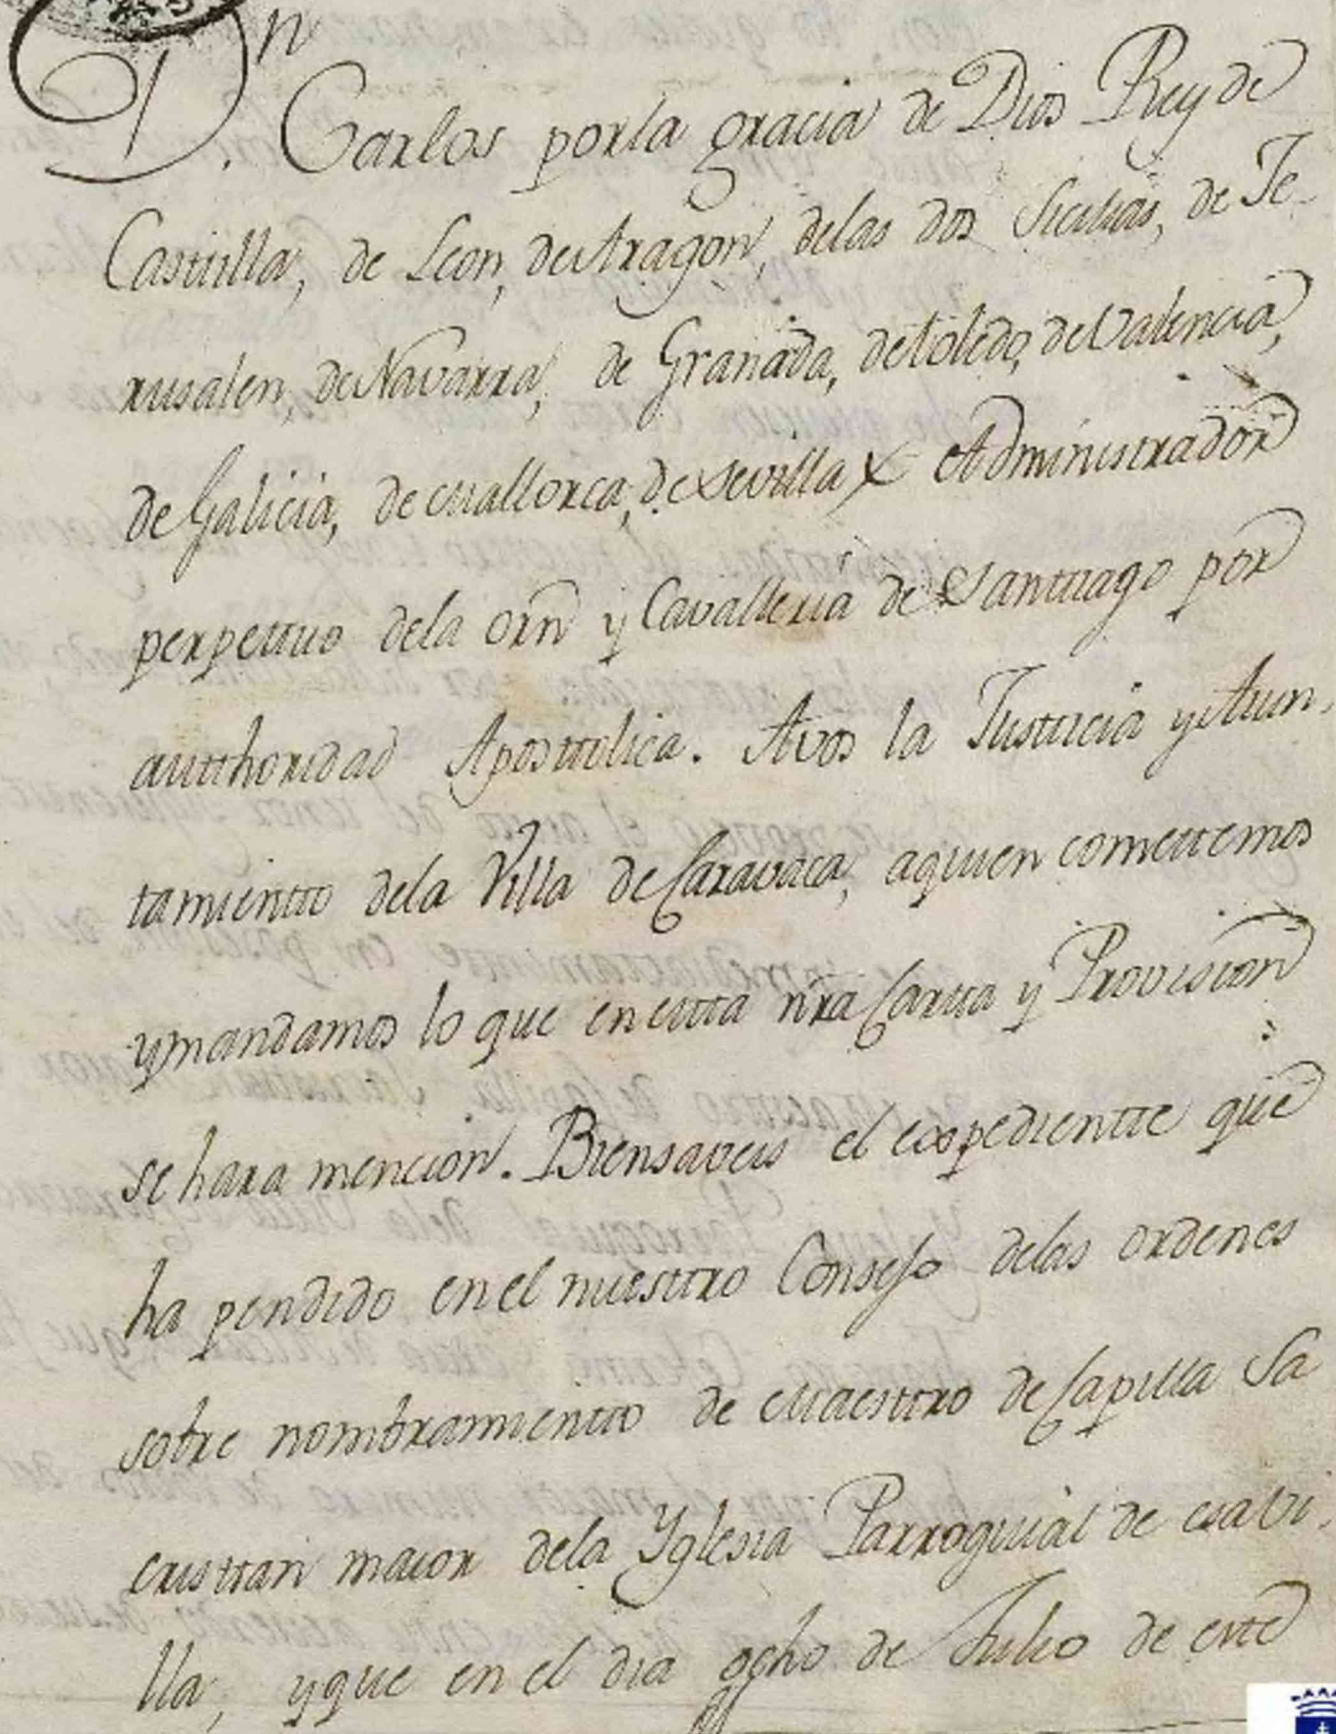 Dn. Carlos por la gracia de Dios Rey de
Castilla, de Leon, de Aragon, de las dos Sicilias, de Je-
rusalen, de Navarra, de Granada, de toledo, de Valencia,
de Galicia, de Mallorca, de Sevilla & Administrador
perpettuo de la orn y Cavalleria de Santtiago por
autthoridad Aposttolica. A vos la Justticia y Aiun-
tamientto de la Villa de Caravaca, a quien comettemos
y mandamos lo que en estta nra Cartta y Provision
se hara mencion. Bien saveis el expedientte que
ha pendido en el nuesttro Consejo de las ordenes
sobre nombramientto de Maesttro de Capilla Sa
cristtan maior de la Yglesia Parroquial de esa Vi-
lla, y que en el dia ocho de Julio de estte